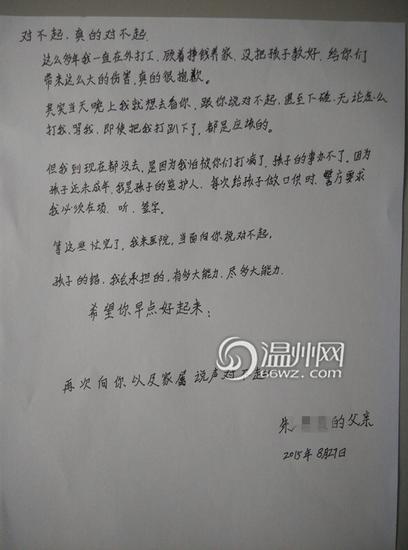 对不起,真的对不起.
这么多年我一直在外打工,顾着挣钱养家,没把孩子教好,给你们
带来这么大的伤害,真的很抱歉.
其实当天晚上我就想去看你,跟你说对不起,甚至下磕,无论怎么
打我,骂我,即使把我打趴下了,都是应该的.
但我到现在都没去,是因为我怕被你们打嘀了,孩子的事办不了,因为
孩子还未成年,我是孩子的监护人,每次给孩子做口供时,警方要求
我必须在场、听、签字.
等这些忙完了,我来医院,当面向你说对不起,
孩子的错,我会承担的,有多大能力,尽多大能力.
希望你早点好起来;
温州网
66wz.com
再次向你以及家属说声对不起
朱 的父亲
2015年8月27日